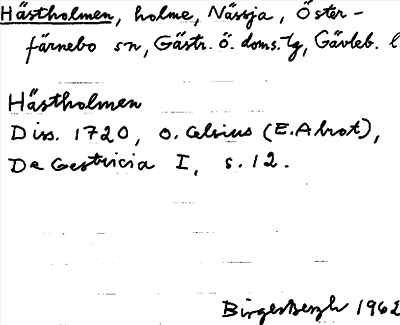 Hästholmen, holme, Nässja, Öster-
färnebo sn, Gästr. ö. doms.tg, Gävleb. l
Hästholmen
Diss. 1720, O. Celsius (E. Abrot),
De Gestricia I, s. 12.
Birger Bergh 1962